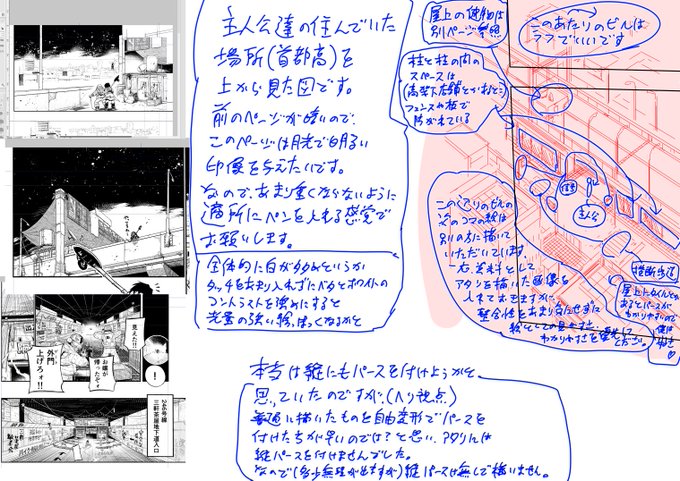 主人公達の住んでいた
場所(首都高)を
上から見た図です。
前のページが暗いので、
このページは月光で明るい
印象を与えたいです。
なので、あまり重くならないように
適所にペンを入れる感覚で
お願いします。
全体的に白が多めというか
タッチをあまり入れずにベタとホワイトの
コントラストを強めにすると
光量の強い絵っぽくなるかと
屋上の建物は
別ページ参照
このあたりのビルは
ラフでいいです
柱と柱の間の
スペースは
フェンスや板で
防がれている
主人公
このくらいのビルの
次のコマの絵は
別の方に描いて
いただいています。
一応資料として
アタリを描いた画像を
入れておきますが、
整合性をあまり気にせずに
絵としての見やすさ、
わかりやすさを
ください。
横断歩道
本当は縦にもパースを付けようかと、
思っていたのですが、(ヘリ視点)
普通に描いたものを自由変形でパースを
付けた方が早いのでは?と思い、アタリには
縦パースを付けませんでした。
なので(多少無理が出ますが)縦パースは無しで構いません。
見えた!!
お嬢が
帰ったぞィ
外門
上げろォ!!
246号線
三軒茶屋地下道入口